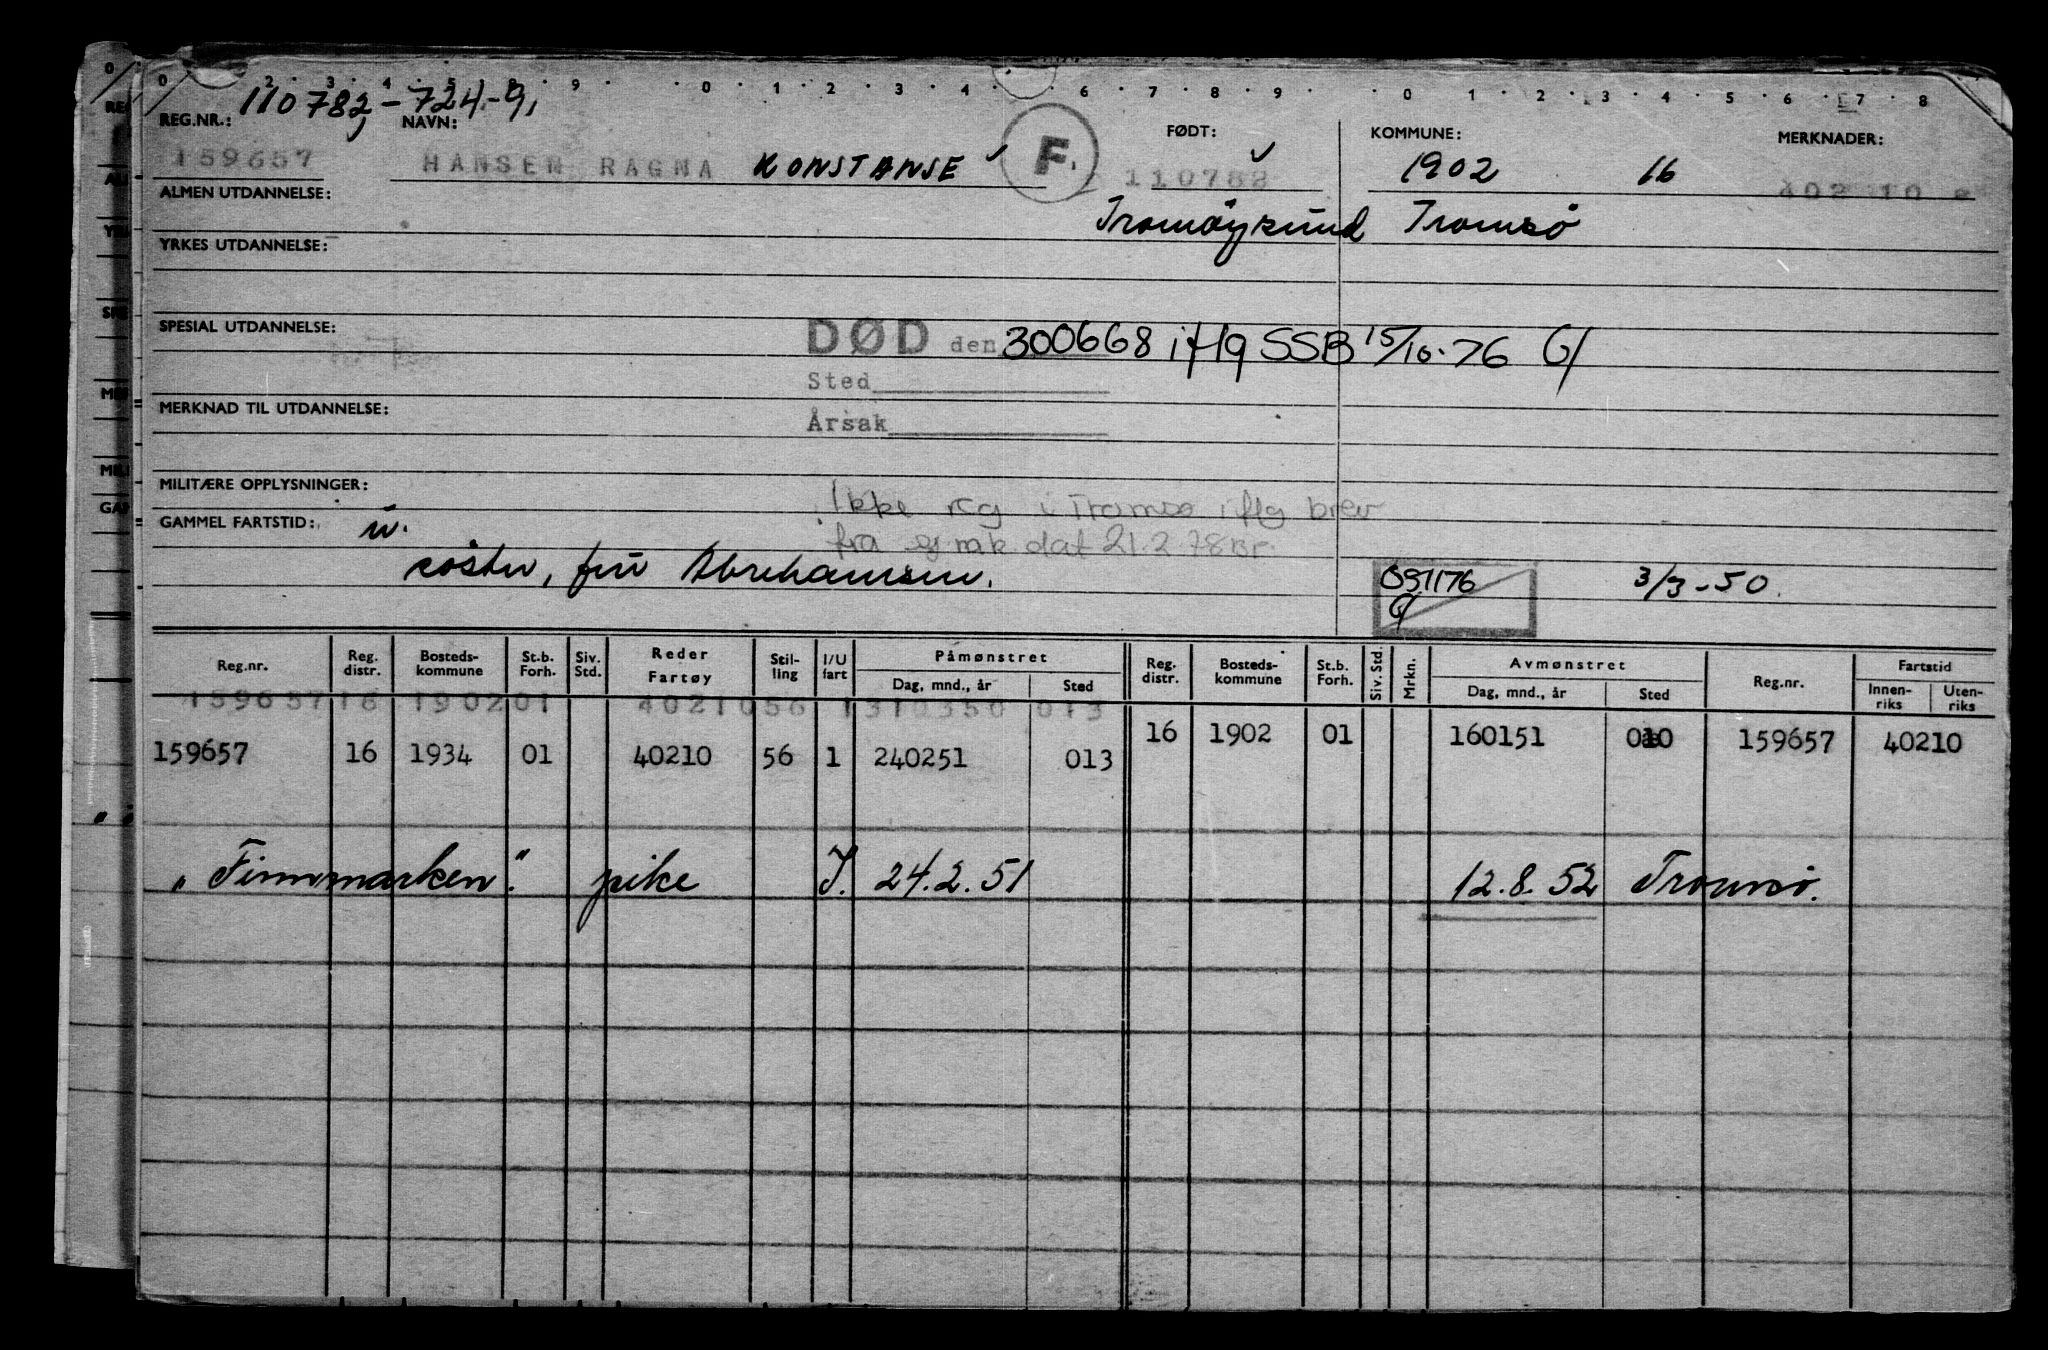 110782-724-9,
REG.NR.: NAVN: FØDT: KOMMUNE: MERKNADER:
159657 HANSEN RAGNA KONSTANSE F. 110782 1902 16 40210
ALMEN UTDANNELSE: Tromsøysund Tromsø
YRKES UTDANNELSE:
SPESIAL UTDANNELSE: DØD den 300668 iflg SSB 15/10-76
Sted
MERKNAD TIL UTDANNELSE: Årsak
MILITÆRE OPPLYSNINGER: Ikke reg i Tromsø iflg brev
GAMMEL FARTSTID: fra sj.mk. dat 21.2.78 Br.
søster, fru Abrahamsen. 091176 3/3-50.
Reg.nr. Reg. distr. Bosteds-kommune St.b. Forh. Siv. Std. Reder Fartøy Stil-ling I/U fart Påmønstret Dag, mnd., år Sted Reg. distr. Bosteds-kommune St.b. Forh. Siv. Std. Mrkn. Avmønstret Dag, mnd., år Sted Reg.nr. Fartstid Innen-riks Uten-riks
159657 16 190201 4021056 1310350 013
16 1902 01 160151 010 159657 40210
159657 16 1934 01 40210 56 1 240251 013
"Finnmarken". pike I. 24.2.51 12.8.52 Tromsø.